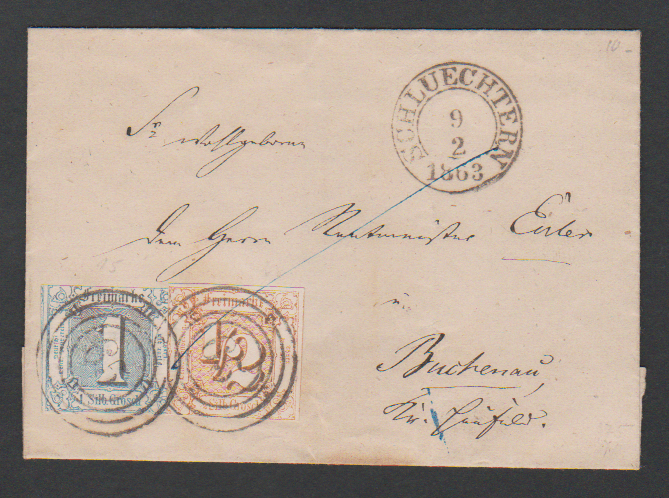 10.-
SCHLUECHTERN
9
2
1863
Sr Wohlgeboren
dem Herrn Rentmeister Euler
Buchenau,
Kr. Hünfeld.
Freimarke
1
1 Silb. Grosch
Freimarke
1/2